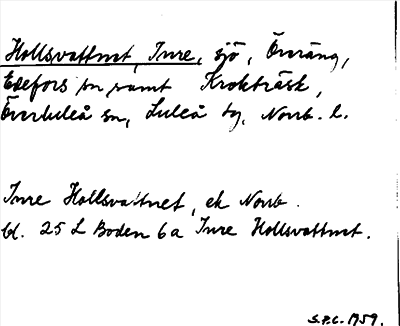 Hollsvattnet, Inre, sjö, Överäng,
Edefors sn samt Krokträsk,
Överluleå sn, Luleå tg, Norrb. l.
Inre Hollsvattnet, ek Norrb.
bl. 25 L Boden 6a Inre Hollsvattnet.
S.P.C. 1959.